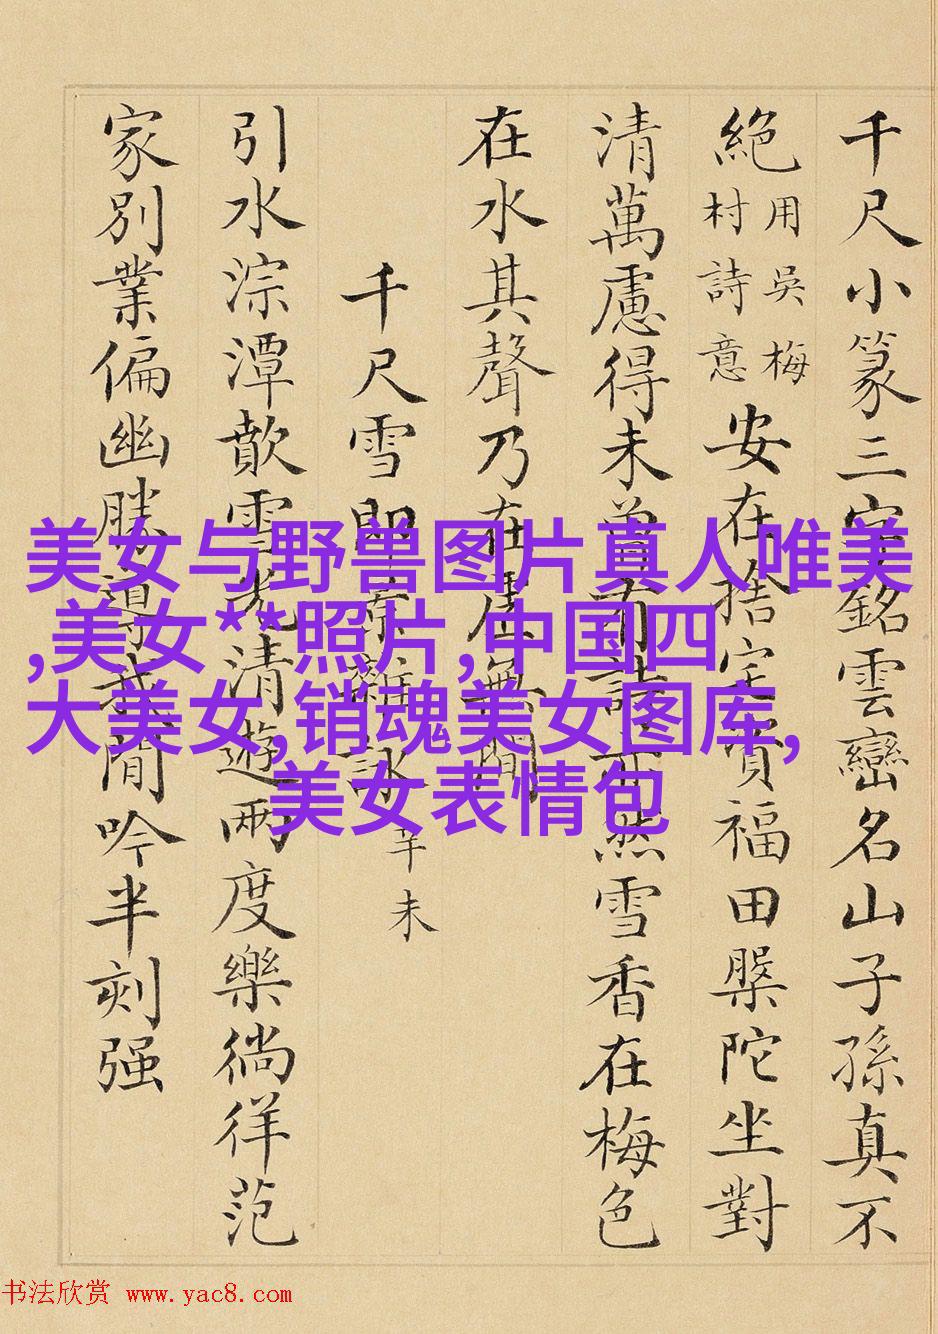 千尺小篆三字銘雲巒名山子孫真不
絕用吳梅村詩意安在捨宅資福田槃陀坐對
清萬慮得未曾有然雪香在梅色
在水其聲乃在虛無間
千尺雪即景雜詠辛未
引水淙潭歕雪光清遊兩度樂徜徉范
家別業偏幽勝導我閒吟半刻强
美女与野兽图片真人唯美
,美女**照片,中国四
大美女,销魂美女图库,
美女表情包
书法欣赏 www.yac8.com